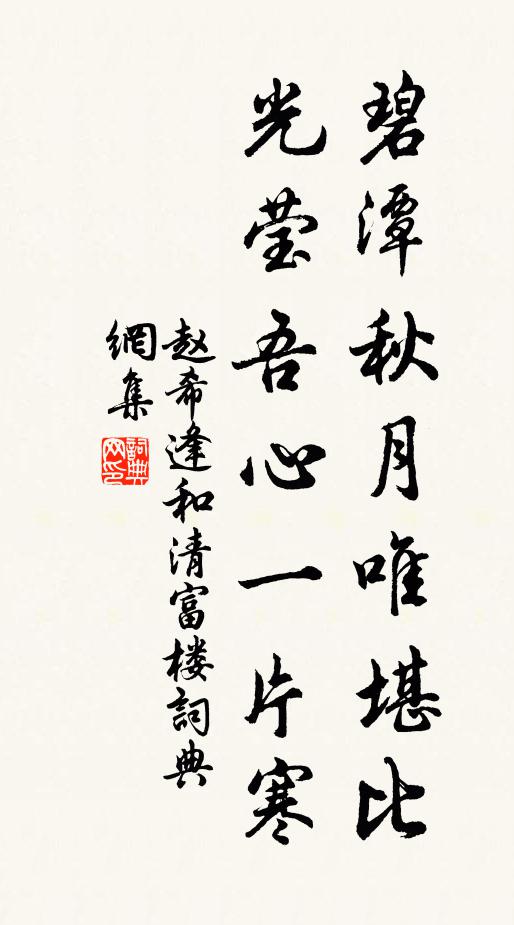 碧潭秋月唯堪比
光莹吾心一片寒
赵希逢和清富楼詞典
網集
詞典网印